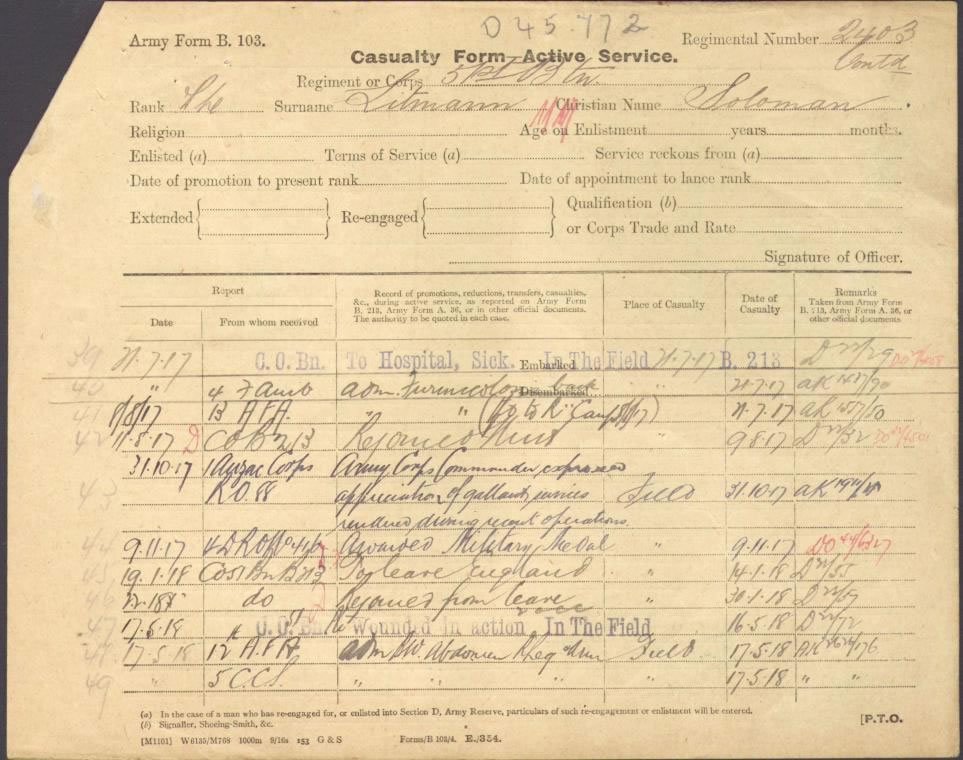 D45772
Army Form B. 103.
Regimental Number 2403
Contd
Casualty Form—Active Service.
Regiment or Corps 51st Btn.
Rank Surname Litmann Christian Name Soloman
Religion Age on Enlistment years months.
Enlisted (a) Terms of Service (a) Service reckons from (a)
Date of promotion to present rank Date of appointment to lance rank
Extended Re-engaged Qualification (b)
or Corps Trade and Rate
Signature of Officer.
Report
Date From whom received
Record of promotions, reductions, transfers, casualties, &c., during active service, as reported on Army Form B. 213, Army Form A. 36, or in other official documents. The authority to be quoted in each case.
Place of Casualty
Date of Casualty
Remarks
Taken from Army Form B. 213, Army Form A. 36, or other official documents
39 21.7.17 C.O.Bn. To Hospital, Sick. Embarked In The Field 21.7.17 B. 213
40 " 4 F Amb adm. Disembarked " 21.7.17 AK
41 13 AFA " " " 21.7.17 AK
42 11.8.17 CO B213 Rejoined Unit " 9.8.17
31.10.17 1 Anzac Corps Army Corps Commander expressed
43 RO 88 appreciation of gallant services Field 31.10.17 AK
rendered during recent operations.
44 9.11.17 Awarded Military Medal " 9.11.17
45 19.1.18 CO 51 Bn B213 To leave England " 14.1.18
46 do Rejoined from leave " 30.1.18
47 17.5.18 " C.O.Bn. Wounded in action In The Field 16.5.18
48 17.5.18 12 AFA adm SW Abdomen Field 17.5.18 AK
49 " 5 C.C.S. " " " " 17.5.18 " "
(a) In the case of a man who has re-engaged for, or enlisted into Section D, Army Reserve, particulars of such re-engagement or enlistment will be entered.
(b) Signaller, Shoeing-Smith, &c.
[P.T.O.
[M1101] W6135/M768 1000m 9/16s 153 G & S Forms/B 103/4. E./354.